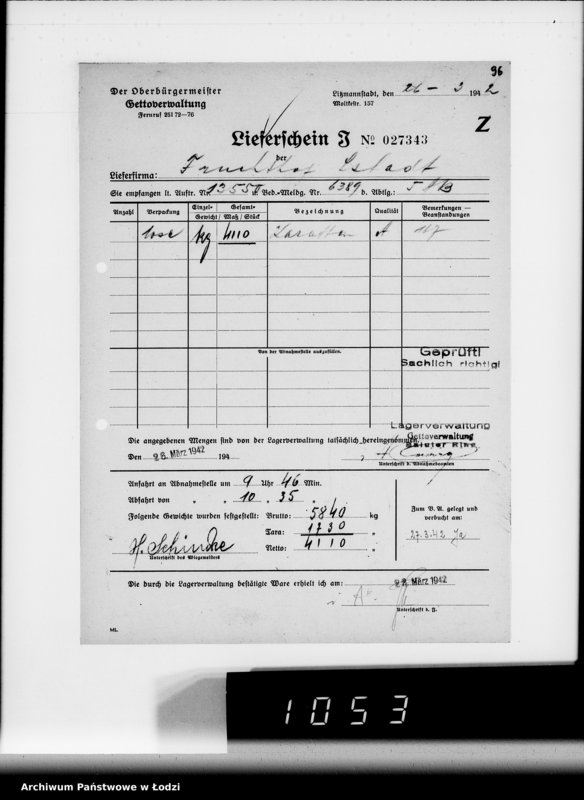 96
Der Oberbürgermeister
Gettoverwaltung
Fernruf 251 72—76
Litzmannstadt, den 26 – 3 1942
Moltkestr. 157
Z
Lieferschein J № 027343
der
Lieferfirma: Fruchthof Lstadt
Sie empfangen lt. Auftr. Nr. 13550 u. Bed.-Meldg. Nr. 6389 d. Abtlg.:
Anzahl Verpackung Einzel- Gesamt- Bezeichnung Qualität Bemerkungen —
Gewicht / Maß / Stück Beanstandungen
lose kg 4110 Karotten A
Von der Abnahmestelle auszufüllen.
Geprüft!
Sachlich richtig!
Lagerverwaltung
Gettoverwaltung
Die angegebenen Mengen sind von der Lagerverwaltung tatsächlich hereingenommen.
Den 26. März 1942 194
Unterschrift d. Abnahmebeamten
Anfahrt an Abnahmestelle um 9 Uhr 46 Min.
Abfahrt von " " 10 " 35 "
Folgende Gewichte wurden festgestellt: Brutto: 5840 kg
Tara: 1730 "
Netto: 4110 "
H. Schindke
Unterschrift des Wiegemeisters
Zum B. A. gelegt und
verbucht am:
27.3.42
Die durch die Lagerverwaltung bestätigte Ware erhielt ich am: März 1942
Unterschrift d. J.
ML.
1053
Archiwum Państwowe w Łodzi